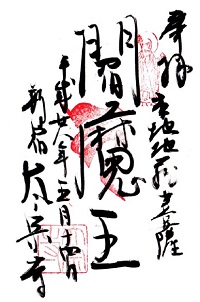 奉拝 本地地蔵菩薩
閻魔王
平成廿八年五月十四日
新宿 太宗寺